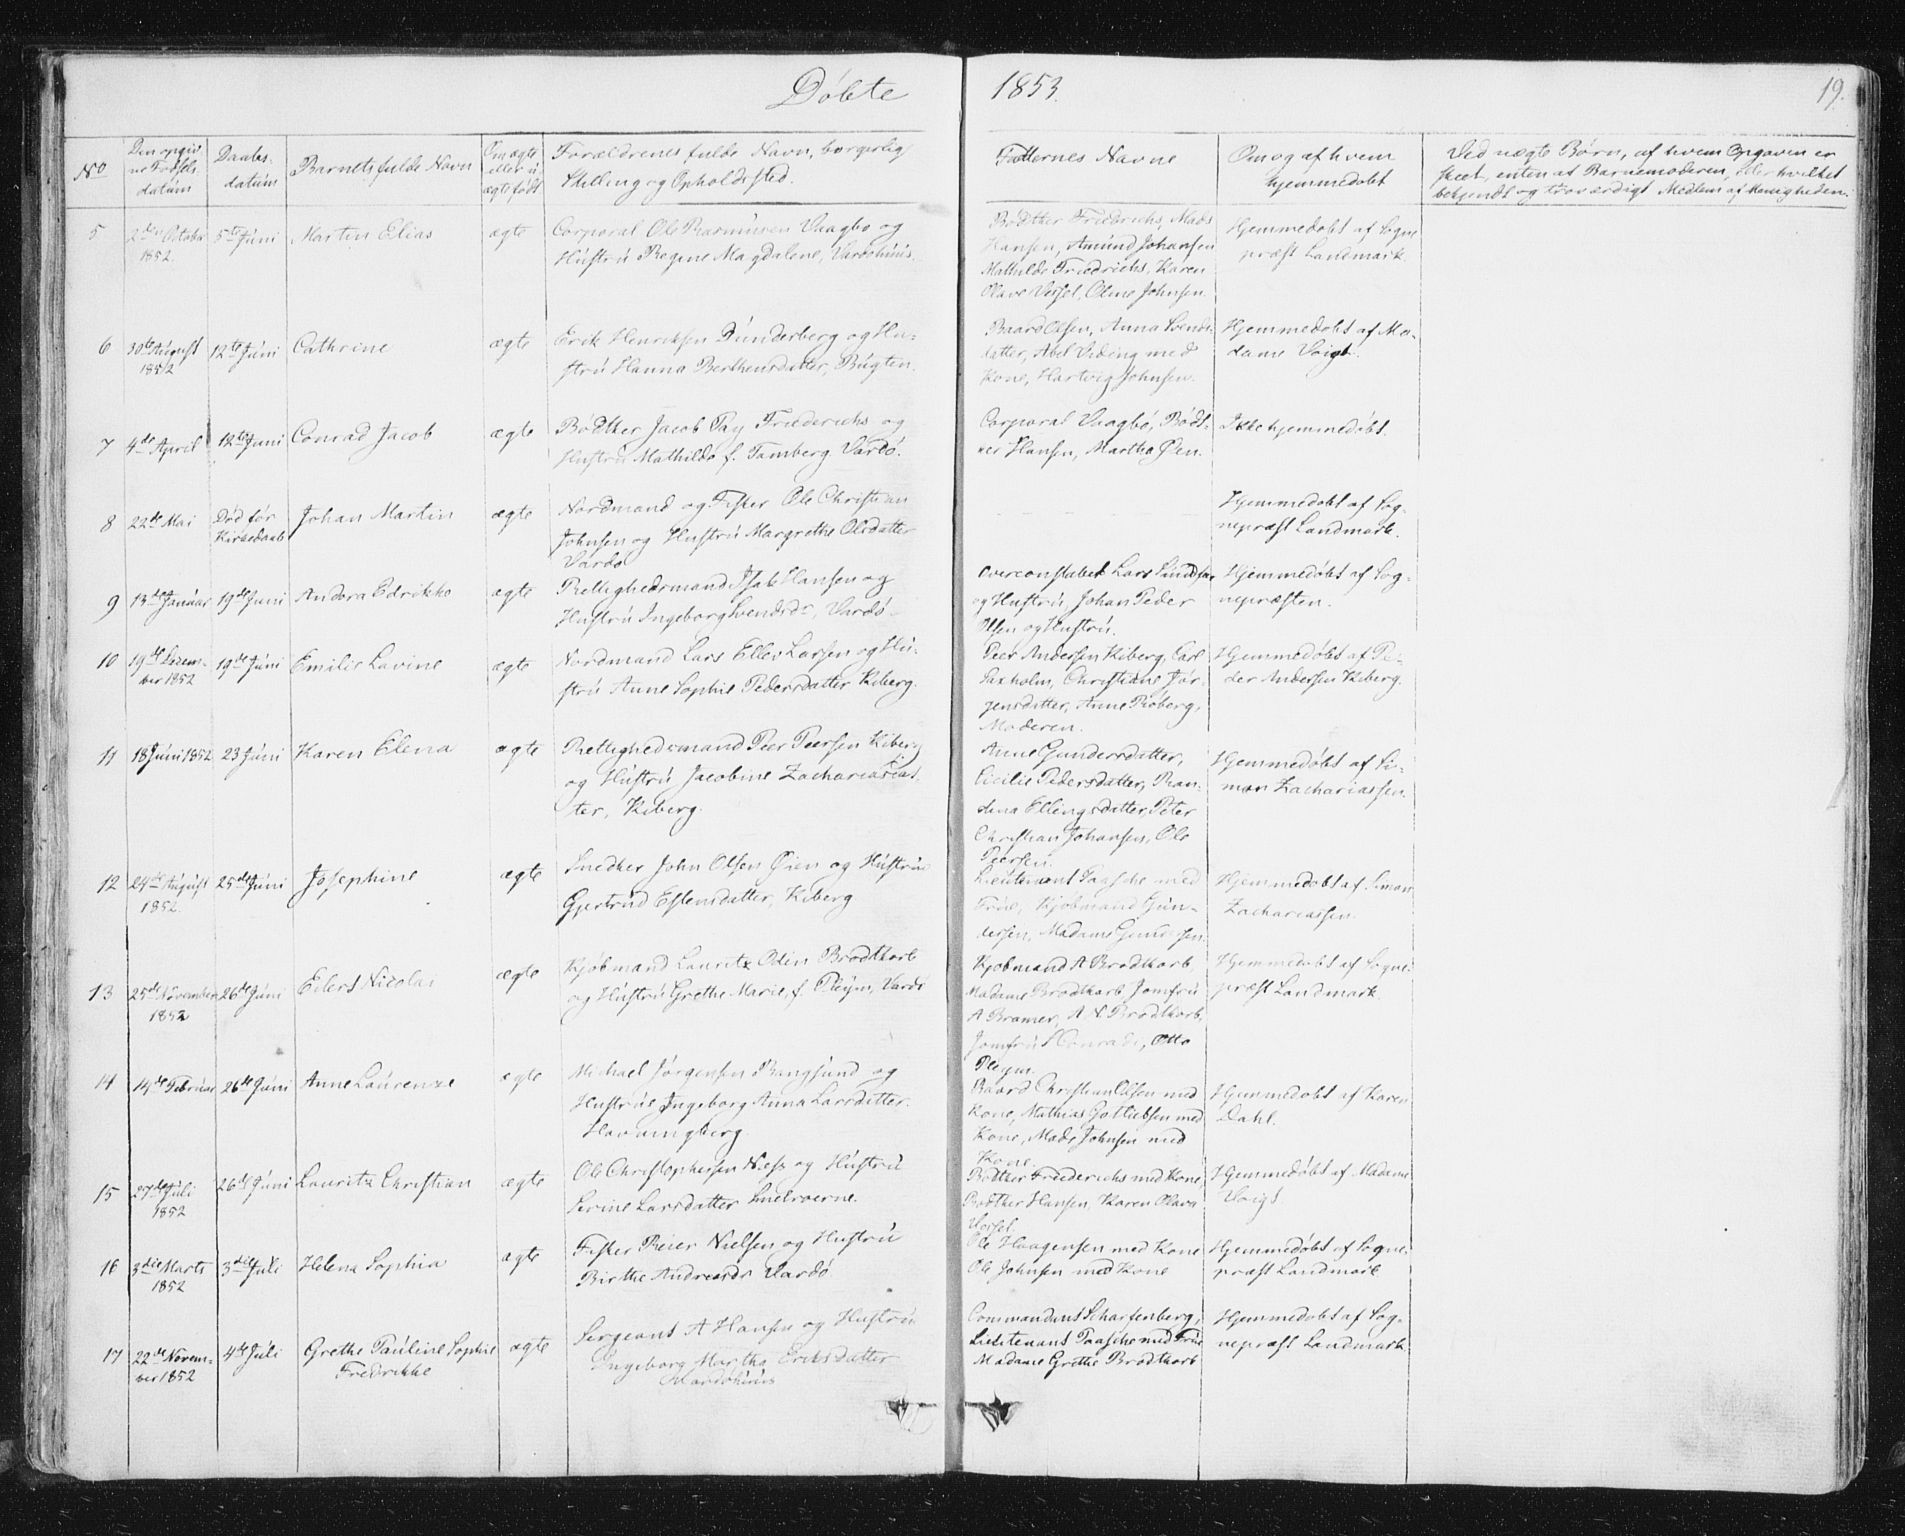 Döbte 1853.
19.
No
Den opgiv
ne Fødsels
datum
Daabs-
datum
Barnets fulde Navn
Om ægte
eller u
ægte født
Forældrenes fulde Navn, borgerlig
Stilling og Opholdssted.
Faddernes Navne
Om og af hvem
hjemmedöbt
Ved uægte Børn, af hvem Opgaven er
skeet, enten at Barnemoderen, eller hvilket
bekjendt og troværdigt Medlem af Menigheden.
5
2den October
1852.
5te Juni
Martin Elias
ægte
Corporal Ole Rasmussen Vaagbø og
Hustrú Regine Magdalene, Vardöhúús.
Bødther Friedrichs, Mads
Hansen, Amúnd Johansen
Mathilde Friedrichs, Karen
Olave Vessel, Oline Johnsen.
Hjemmedöbt af Sogne
præst Landmark.
6
30te Aúgúst
1852
12te Júni
Cathrine
ægte
Erik Henriksen Dúnderberg og Hu-
strú Hanna Berthensdatter, Búgten.
Baard Olsen, Anna Svends-
datter, Abel Viding med
Kone, Hartvig Johnsen.
Hjemmedöbt af Ma-
dame Voigt.
7
4de April
12te Juni
Conrad Jacob
ægte
Bødther Jacob Pay Friederichs og
Hustrú Mathilde f. Tamberg Vardö.
Corporal Vaagbö, Bödt-
ker Hansen, Martha Øien.
Ikke hjemmedöbt.
8
22de Mai
Död för
Kirkedaab
Johan Martin
ægte
Nordmand og Fisker Ole Christian
Johnsen og Hustrú Margrethe Olsdatter
Vardö
Hjemmedöbt af Sog-
nepræst Landmark.
9
13de Janúar
19de Juni
Andora Edrikke
ægte
Rettighedsmand Isak Hansen og
Hustrú Ingeborg Svendsdr, Vardö
Overconstabel Lars
og Hustrú, Johan Peder
Olsen og Hustrú.
Hjemmedöbt af Sog-
nepræsten.
10
19de Decem-
ber 1852
19de Júni
Emilie Lavine
ægte
Nordmand Lars Eller Larsen og Hú-
strú Anne Sophie Pedersdatter Kiberg.
Peer Andersen Kiberg, Carl
Saxholm, Christiane Jör-
gensdatter, Anne Röberg,
Moderen.
Hjemmedöbt af Pe-
der Andersen Kiberg.
11
18 Júni 1852
23 Júni
Karen Elena
ægte
Rettighedsmand Peer Peersen Kiberg
og Hústrú Jacobine Zachariasdat-
ter, Kiberg.
Anne Gundersdatter,
Cicilie Pedersdatter, Ran-
dina Ellingsdatter, Peter
Christian Johansen, Ole
Peersen
Hjemmedöbt af Si-
mon Zachariassen.
12
24de Aúgúst
1852.
25de Júni
Josephine
ægte
Snedker John Olsen Øien og Hústrú
Gjertrud Estensdatter, Kiberg
Lieutenant Paasche med
Frúe, Kjöbmand Gún-
dersen, Madame Gundersen
Hjemmedöbt af Simon
Zachariassen.
13
25de November
1852
26de Júni
Eilert Nicolai
ægte
Kjöbmand Lauritz Odin Brodtkorb
og Hústrú Grethe Marie, f. Pleÿm, Vardö
Kjöbmand A Brodtkorb,
Madame Brodtkorb Jomfru
A Bramer, A N. Brodtkorb,
Jomfrú S Conradi, Otto
Pleym.
Hjemmedöbt af Sogne-
præst Landmark.
14
14de Februar
26de Júni
Anne Laúrenze
ægte
Michael Jörgensen Bangsund og
Hustrúe Ingeborg Anna Larsdatter.
Havningberg.
Baard Christian Olsen med
Kone, Mathias Gotliebsen med
Kone, Mads Johnsen med
Kone.
Hjemmedöbt af Karen
Dahl.
15
27de Júli
1852
26de Júni
Lauritz Christian
ægte
Ole Christophersen Næss og Hústrú
Serine Larsdatter Smelroerne.
Bødther Friederichs med Kone,
Bødther Hansen, Karen Olava
Vessel
Hjemmedöbt af Madame
Voigt
16
3die Marts
1852
3die Júli
Helena Sophia
ægte
Fisker Reier Nielsen og Hustrú
Birthe Andreasdr Vardö
Ole Haagensen med Kone
Ole Johnsen med Kone
Hjemmedöbt af Sogne-
præst Landmark
17
22de Novem-
ber 1852
4de Júli
Grethe Paúline Sophie
Fredrikke
ægte
Sergeant A Hansen og Hustrú
Ingeborg Martha Eriksdatter
Vardöhúús
Commandant Schartenberg,
Lieutenant Paasche med Frúe
Madame Grethe Brodtkorb
Hjemmedöbt af Sog-
nepræst Landmark